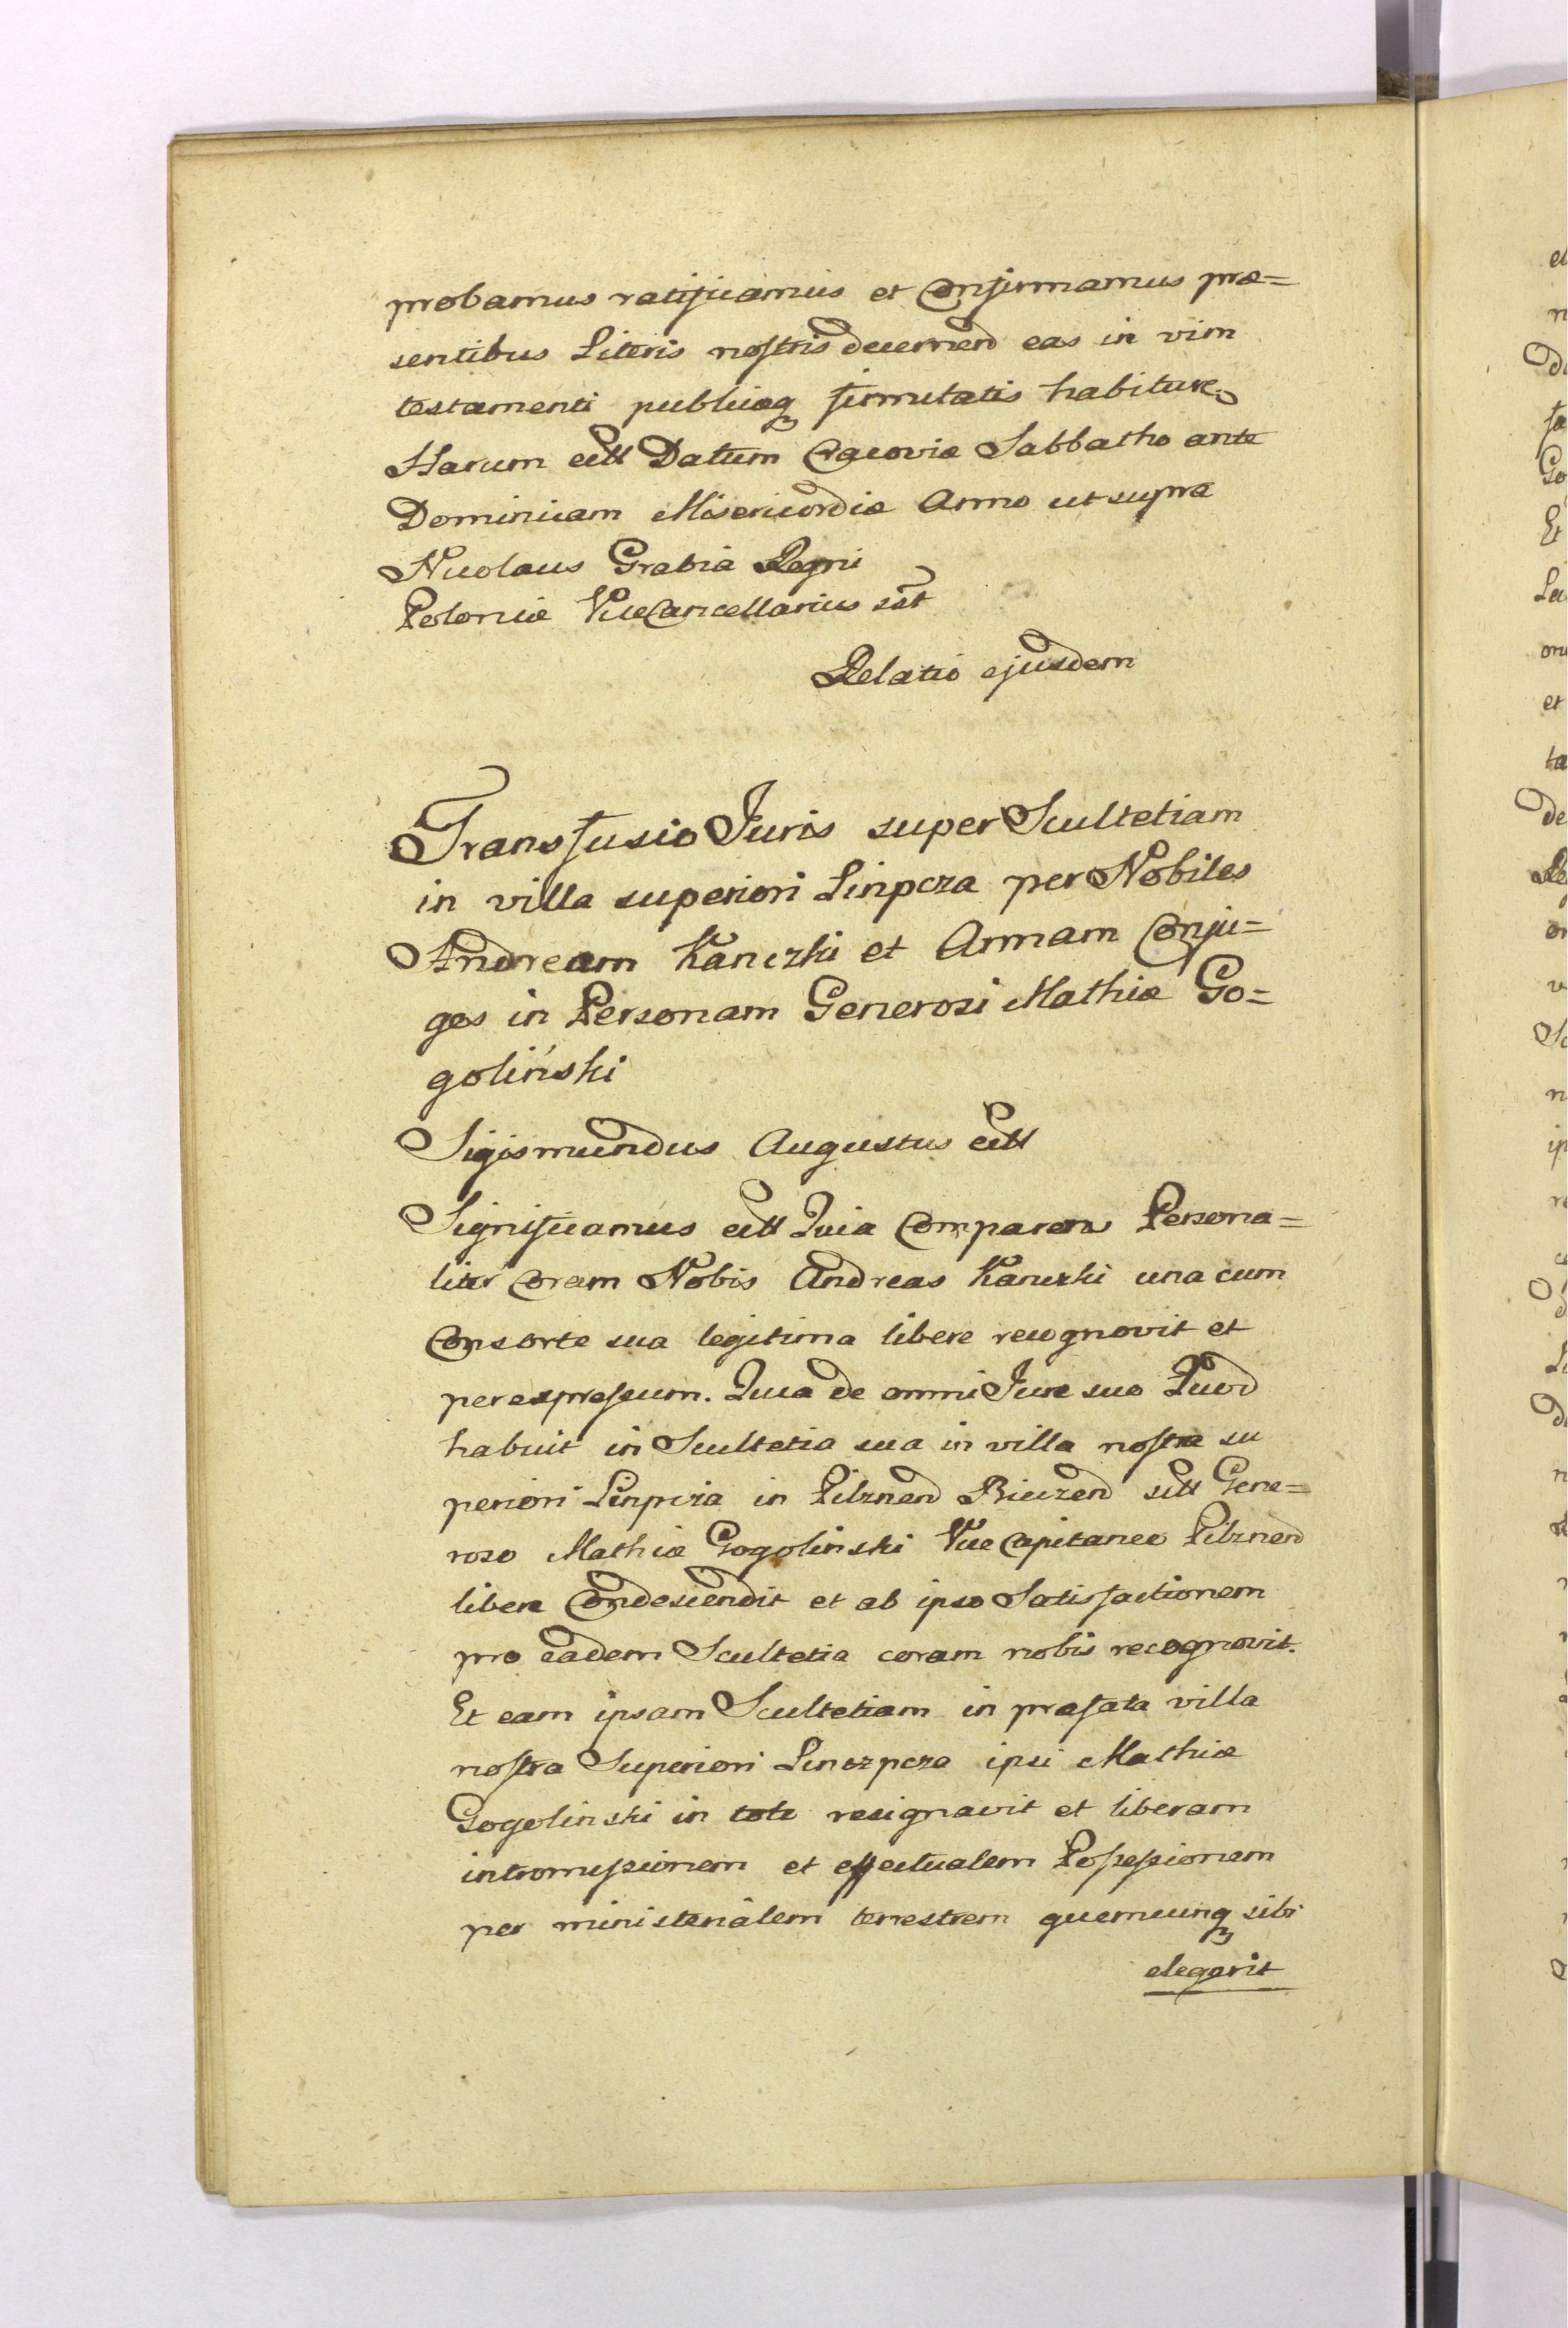 probamus ratificamus et Confirmamus præ=
sentibus Literis nostris decernend eas in vim
testamenti publicæq firmitatis habituræ
Harum ettt Datum Cracoviæ Sabbatho ante
Dominicam Misericordiæ Anno ut supra
Nicolaus Grabia Regni
Poloniæ ViceCancellarius sst
Relatio ejusdem
Transfusio Juris super Scultetiam
in villa superiori Linpcza per Nobiles
Andream Kanczki et Annam Conju=
ges in Personam Generosi Mathiæ Go=
goliński
Sigismundus Augustus ettt
Significamus ettt Quia Comparens Persona=
liter Coram Nobis Andreas Kanczki una cum
Consorte sua legitima libere recognovit et
per expressum. Quia de omni Jure suo Quod
habuit in Scultetia sua in villa nostra su
periori Linpcza in Pilznend Bieczend sitt Gene=
roso Mathiæ Gogolinski Vice Capitaneo Pilznend
libere Condescendit et ab ipso Satisfactionem
pro eadem Scultetia coram nobis recognovit.
Et eam ipsam Scultetiam in præfata villa
nostra Superiori Linczpcza ipsi Mathiæ
Gogolinski in toto resignavit et liberam
intromissionem et effectualem Possessionem
per ministerialem terrestrem quemcunq sibi
elegerit